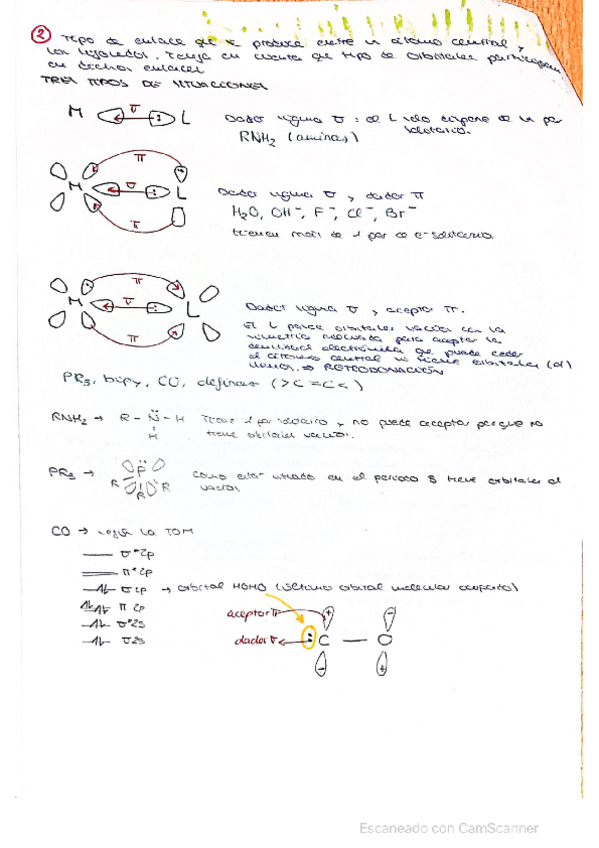 ② Tipo de enlace que se produce entre el átomo central y
los ligandos. Tenga en cuenta que tipo de orbitales participan
en dichos enlaces
TRES TIPOS DE SITUACIONES
M σ L Dador sigma σ: el L solo dispone de un par
solitario.
RNH₂ (aminas)
π
M σ L
π
Dador sigma σ y dador π
H₂O, OH⁻, F⁻, Cl⁻, Br⁻
tienen más de 1 par de e⁻ solitario.
π
M σ L
π
Dador sigma σ y aceptor π.
El L posee orbitales vacíos con la
simetría adecuada para aceptar la
densidad electrónica que puede ceder
el átomo central si tiene orbitales (d)
llenos. ⇒ RETRODONACIÓN
PR₃, bipy, CO, olefinas (>C=C<)
RNH₂ → R - N̈ - H Tiene 1 par solitario y no puede aceptar porque no
H tiene orbitales vacíos.
PR₃ → P R R R como está situado en el periodo 3 tiene orbitales d
vacíos
CO → según la TOM
σ*2p
π*2p
σ2p → orbital HOMO (último orbital molecular ocupado)
π 2p
σ*2s
σ2s
aceptor π
dador σ
: C — O
+ -
- +
Escaneado con CamScanner